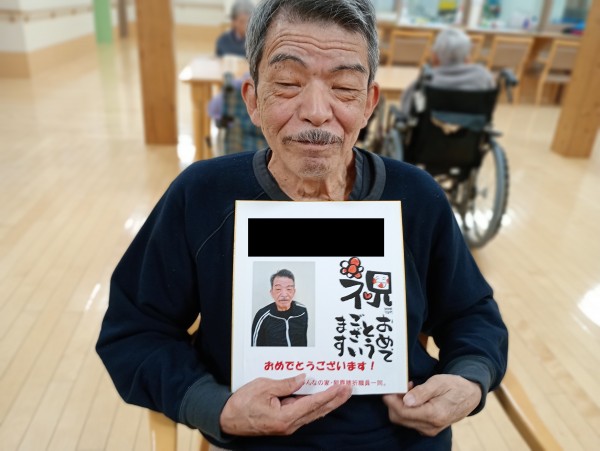 祝
おめで
とう
ござい
ます
おめでとうございます！
んなの家・
職員一同。